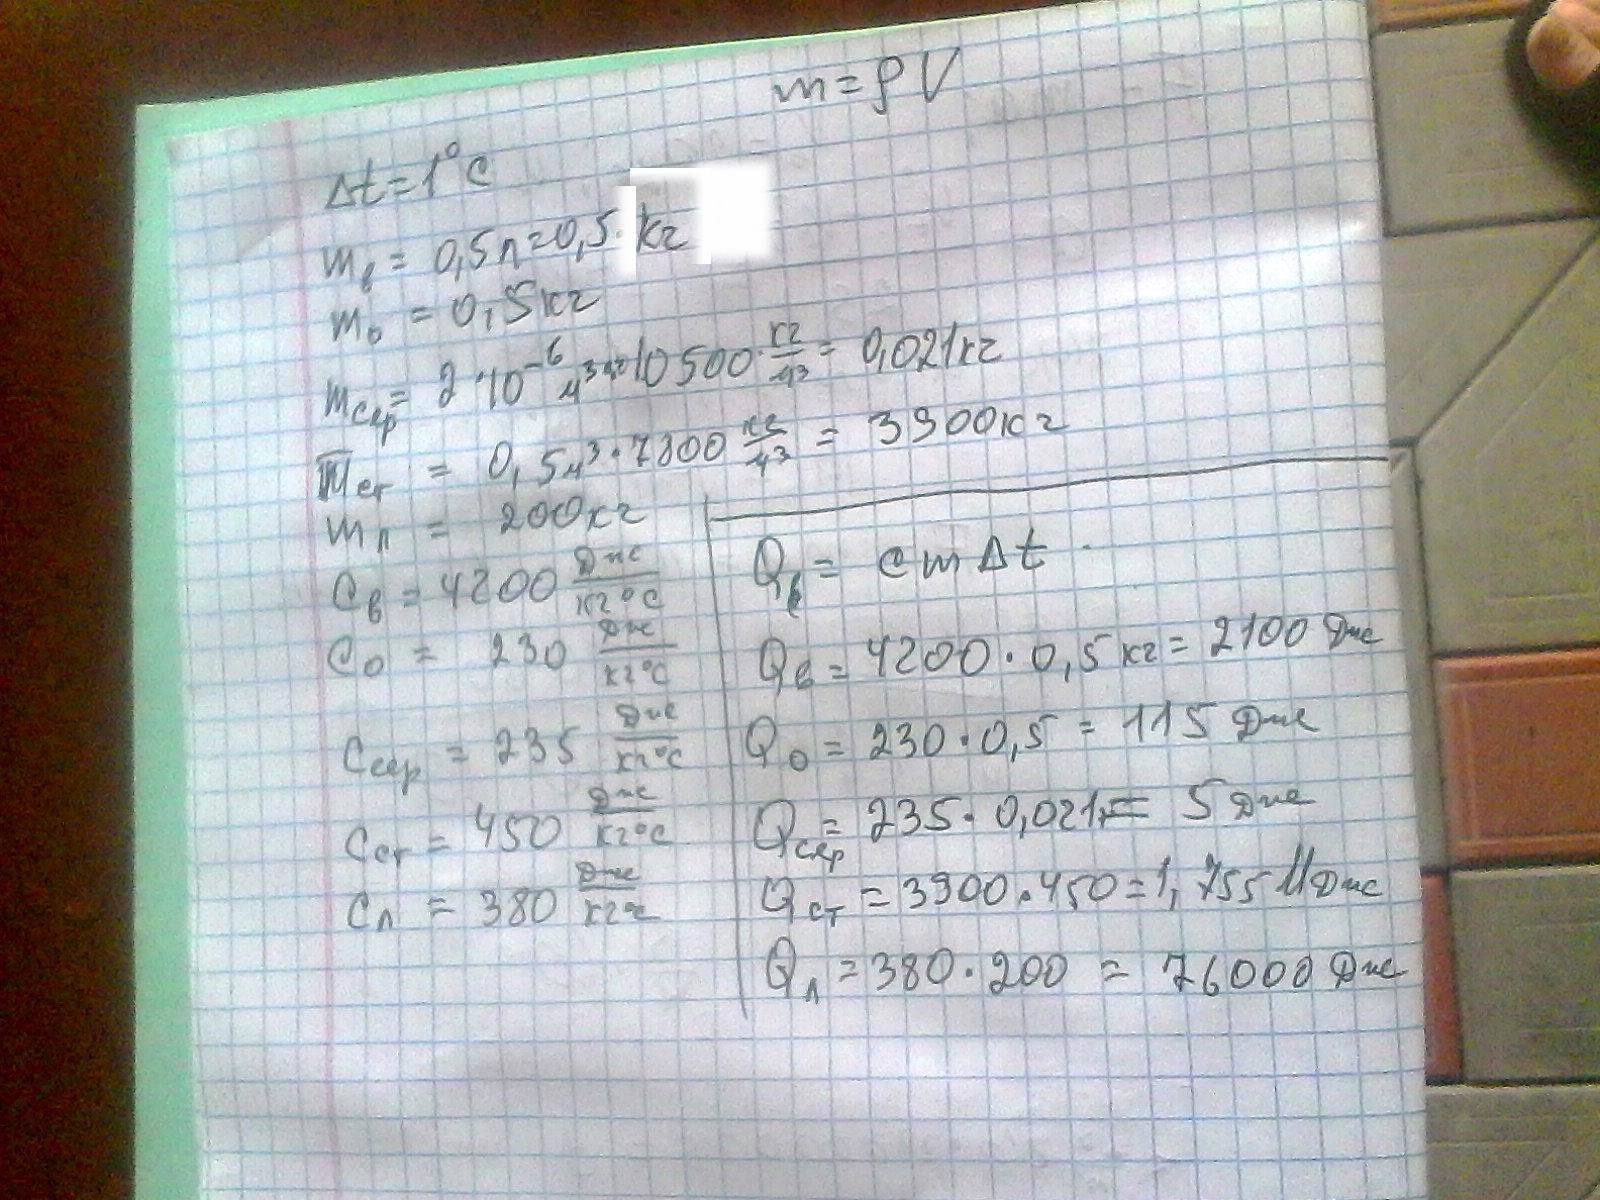 m = ρV
Δt = 1°C
mв = 0,5л = 0,5 · кг
mо = 0,5 кг
mсер = 2·10⁻⁶ м³ · 10500 · кг/м³ = 0,021 кг
mст = 0,5 м³ · 7800 кг/м³ = 3900 кг
mл = 200 кг
Cв = 4200 Дж/кг°C
Cо = 230 Дж/кг°C
Cсер = 235 Дж/кг°C
Cст = 450 Дж/кг°C
Cл = 380 Дж/кг°C
Qв = cmΔt
Qв = 4200 · 0,5 кг = 2100 Дж
Qо = 230 · 0,5 = 115 Дж
Qсер = 235 · 0,021 = 5 Дж
Qст = 3900 · 450 = 1,755 МДж
Qл = 380 · 200 = 76000 Дж